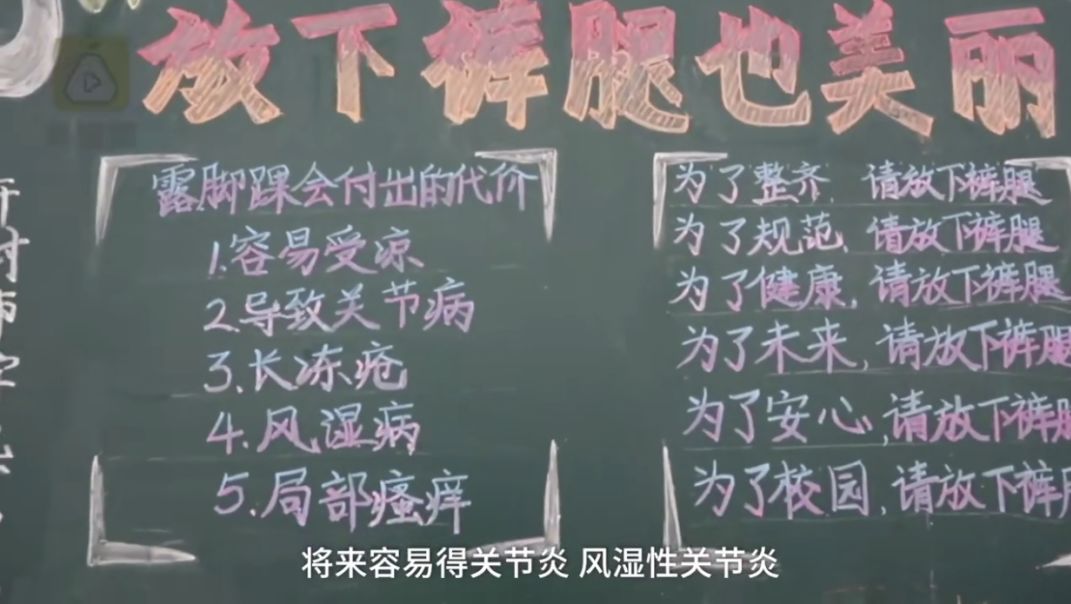 放下裤腿也美丽
露脚踝会付出的代价
1.容易受凉
2.导致关节病
3.长冻疮
4.风湿病
5.局部瘙痒
为了整齐,请放下裤腿
为了规范,请放下裤腿
为了健康,请放下裤腿
为了未来,请放下裤腿
为了安心,请放下裤腿
为了校园,请放下裤腿
将来容易得关节炎 风湿性关节炎